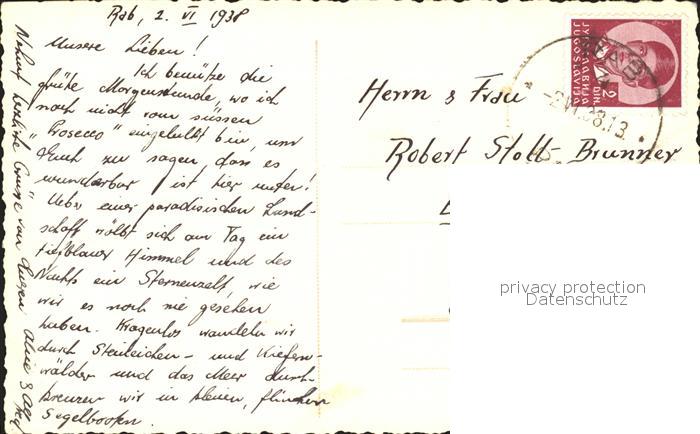 Rab, 2. VI 1938
Unsere Lieben!
Ich benütze die
frühe Morgenstunde, wo ich
noch nicht vom süssen
"Prosecco" eingelullt bin, um
Euch zu sagen, dass es
wunderbar ist hier unten!
Ueber einer paradisischen Land-
schaft wölbt sich am Tag ein
tiefblauer Himmel und des
Nachts ein Sternenzelt, wie
wir es noch nie gesehen
haben. Kragenlos wandeln wir
durch Steineichen- und Kiefern-
wälder und das Meer durch-
kreuzen wir in kleinen, flinken
Segelbooten.
Nehmt herzliche Grüsse von Euren
Herrn & Frau
Robert Stoll-Brunner
ЈУГОСЛАВИЈА
JUGOSLAVIJA
2
DIN.
RAB
-2.VI.38.13
privacy protection
Datenschutz